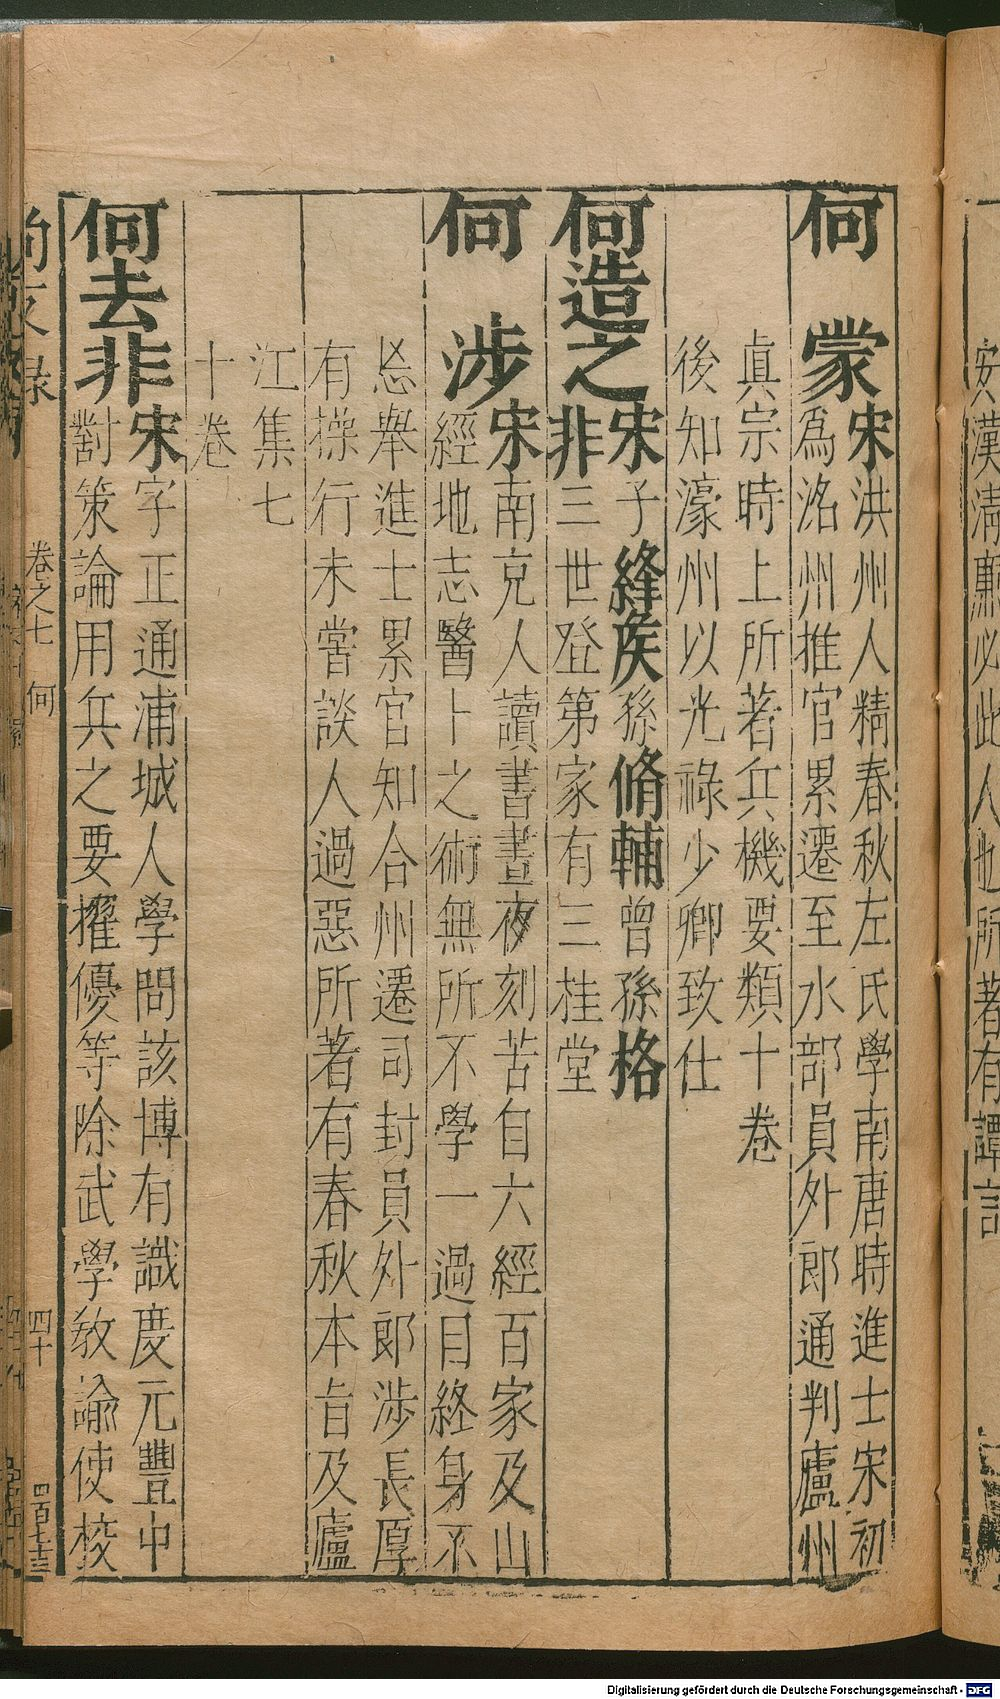 何　蒙
宋洪州人精春秋左氏學南唐時進士宋初
爲洺州推官累遷至水部員外郎通判廬州
真宗時上所著兵機要類十卷
後知濠州以光祿少卿致仕
何造之
宋子縫矦孫脩輔曾孫格
非三世登第家有三桂堂
何　涉
宋南充人讀書晝夜刻苦自六經百家及山
經地志醫卜之術無所不學一過目終身不
忘舉進士累官知合州遷司封員外郎涉長厚
有操行未嘗談人過惡所著有春秋本旨及廬
江集七
十卷
何去非
宋字正通浦城人學問該博有識慶元豐中
對策論用兵之要擢優等除武學教諭使校
卷之七　何
四十
四百七十三
安漢淸
必此人也所著有譚言
Digitalisierung gefördert durch die Deutsche Forschungsgemeinschaft - DFG